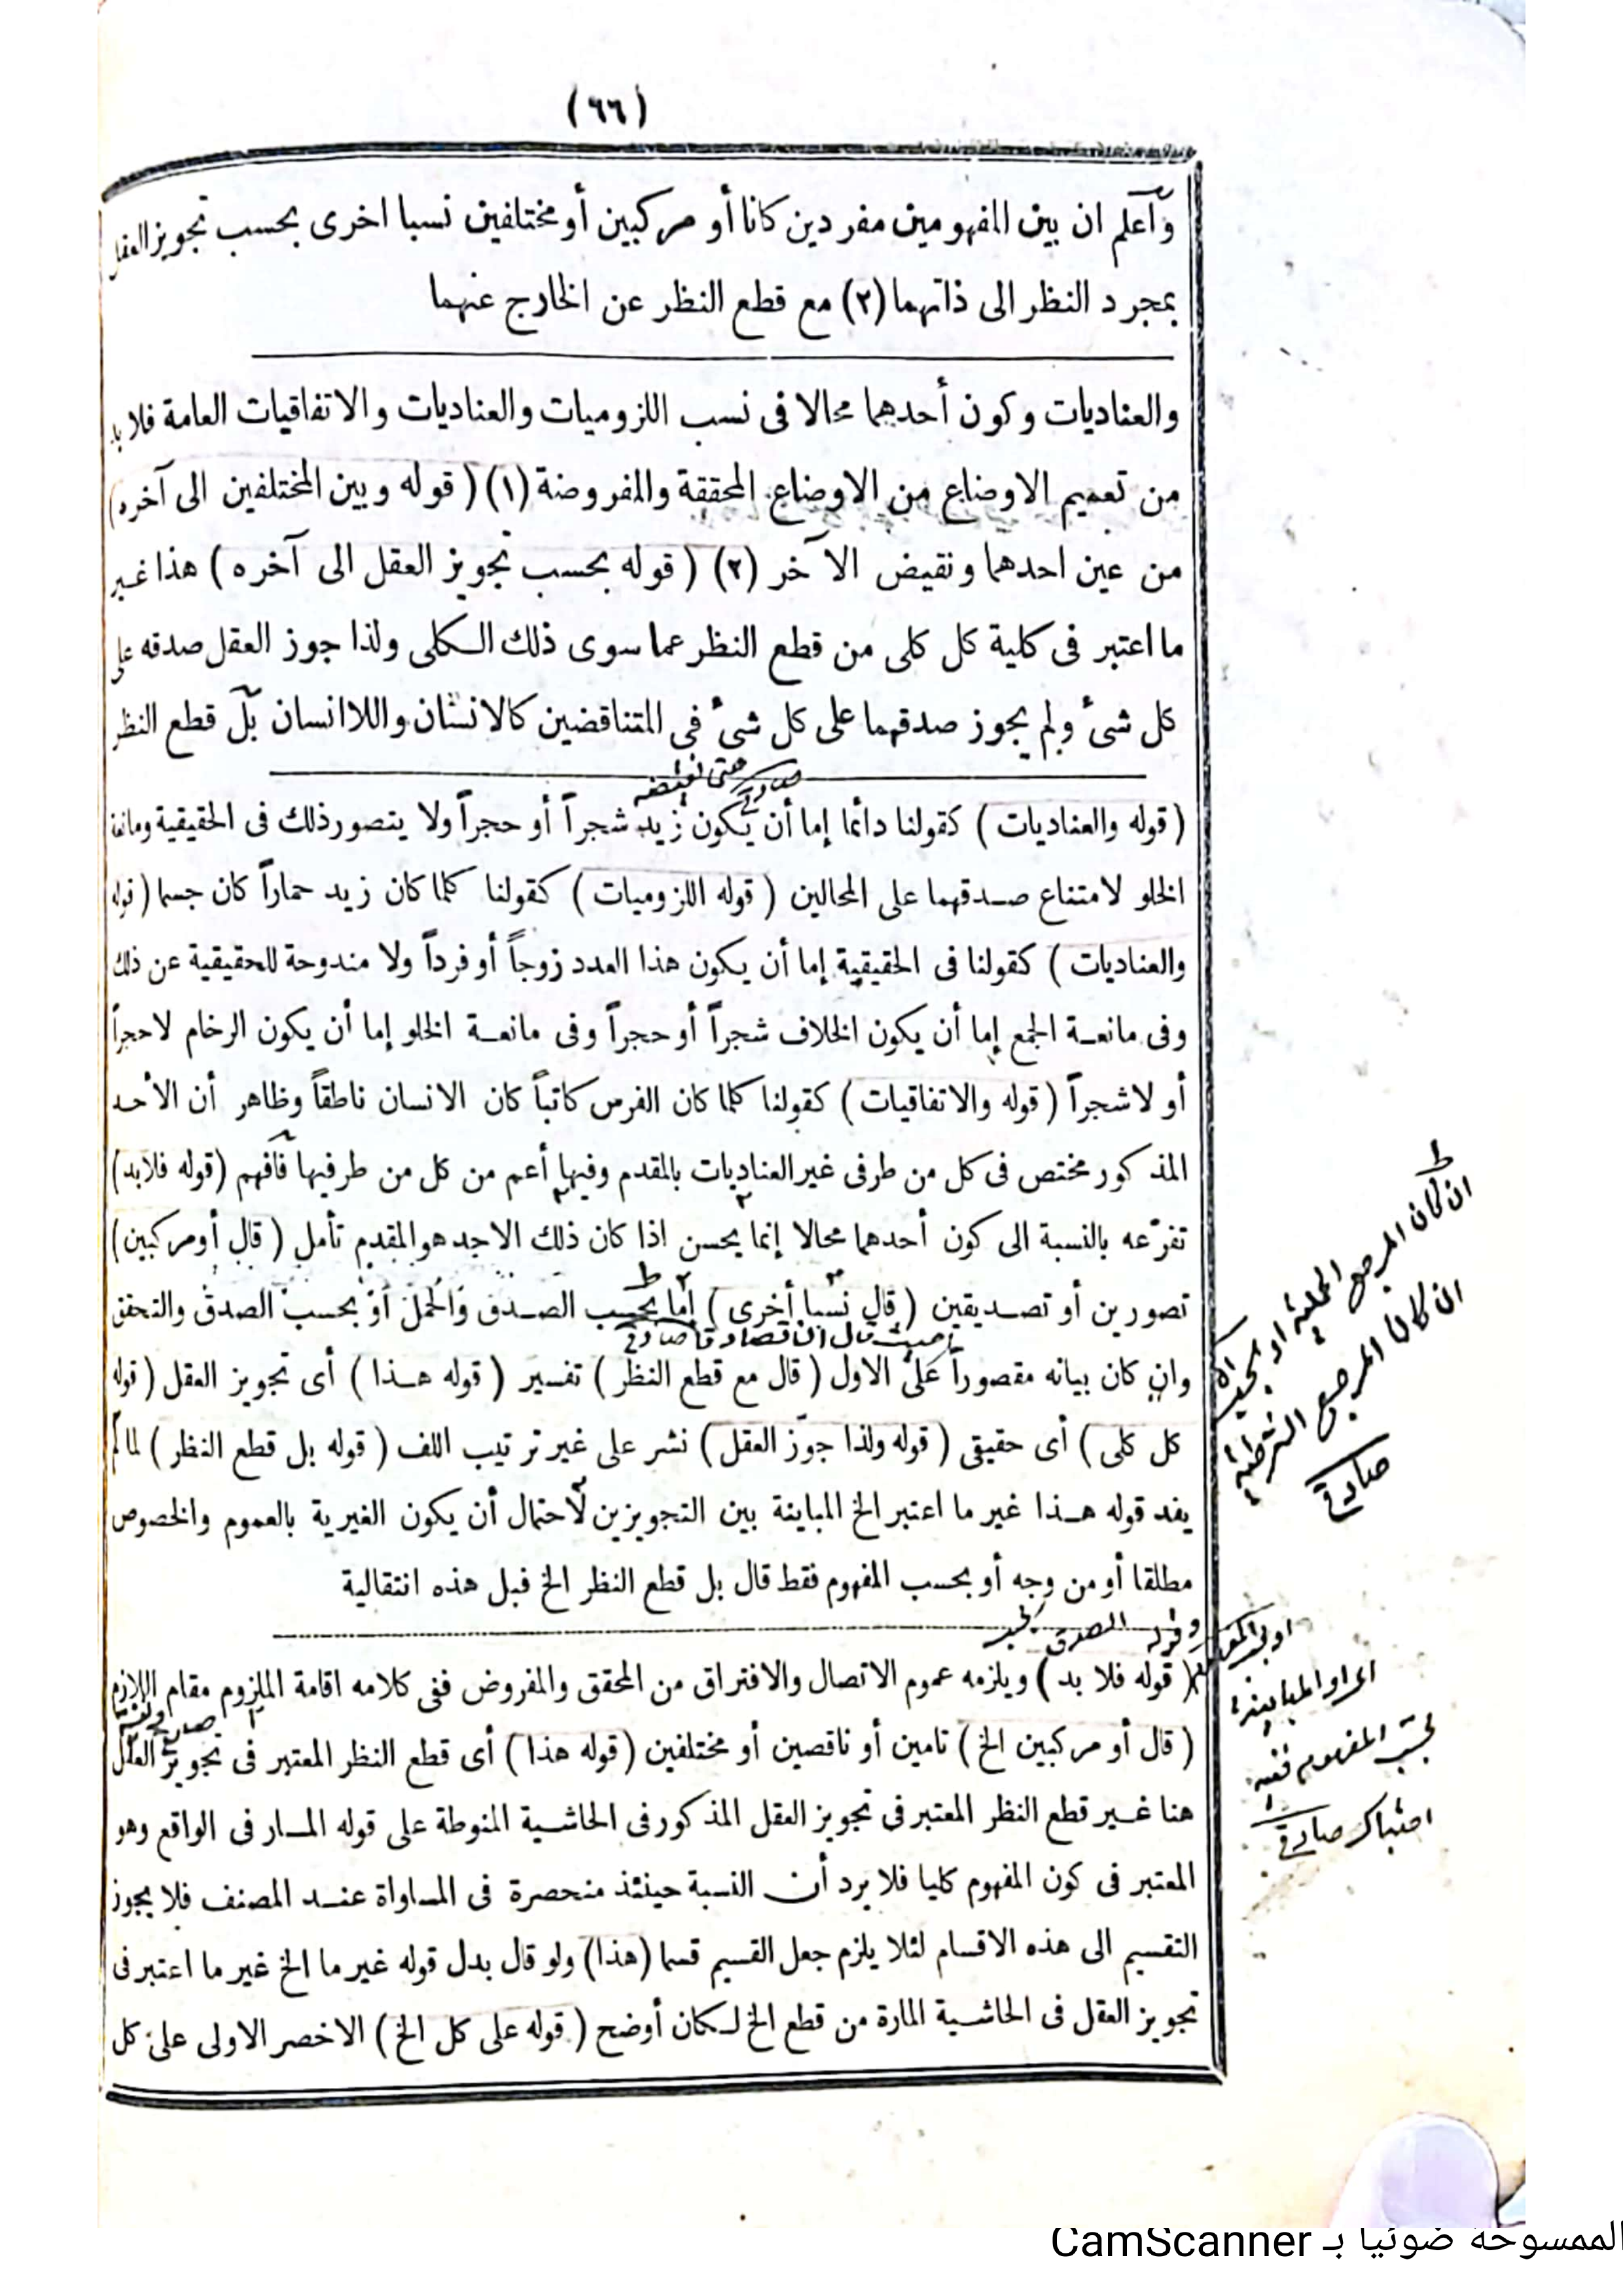 (٦٦)
وآعلم ان بين المفهومين مفردين كانا أو مركبين أو مختلفين نسبا اخرى بحسب تجويز العقل
بمجرد النظر الى ذاتهما (٢) مع قطع النظر عن الخارج عنهما
والعناديات وكون أحدهما محالا فى نسب اللزوميات والعناديات والاتفاقيات العامة فلا بد
من تعميم الاوضاع من الاوضاع المحققة والمفروضة (١) (قوله وبين المختلفين الى آخره)
من عين احدهما ونقيض الآخر (٢) (قوله بحسب تجويز العقل الى آخره) هذا غير
ما اعتبر فى كلية كل كلى من قطع النظر عما سوى ذلك الكلى ولذا جوز العقل صدقه على
كل شئ ولم يجوز صدقهما على كل شئ فى المتناقضين كالانسان واللاانسان بل قطع النظر
(قوله والعناديات) كقولنا دائما إما أن يكون زيد شجراً أو حجراً ولا يتصور ذلك فى الحقيقية ومانعة
الخلو لامتناع صدقهما على المحالين (قوله اللزوميات) كقولنا كلما كان زيد حماراً كان جسما (قوله
والعناديات) كقولنا فى الحقيقية إما أن يكون هذا العدد زوجاً أو فرداً ولا مندوحة للحقيقية عن ذلك
وفى مانعة الجمع إما أن يكون الخلاف شجراً أو حجراً وفى مانعة الخلو إما أن يكون الرخام لاحجراً
أو لاشجراً (قوله والاتفاقيات) كقولنا كلما كان الفرس كاتباً كان الانسان ناطقاً وظاهر أن الأحد
المذكور مختص فى كل من طرفى غير العناديات بالمقدم وفيها أعم من كل من طرفيها فافهم (قوله فلابد)
تفرّعه بالنسبة الى كون أحدهما محالا إنما يحسن اذا كان ذلك الاحد هو المقدم تأمل (قال أو مركبين)
تصورين أو تصديقين (قال نسبا أخرى) إما بحسب الصدق والحمل أو بحسب الصدق والتحقق
وان كان بيانه مقصوراً على الاول (قال مع قطع النظر) تفسير (قوله هذا) أى تجويز العقل (قوله
كل كلى) أى حقيقى (قوله ولذا جوّز العقل) نشر على غير ترتيب اللف (قوله بل قطع النظر) لما لم
يفد قوله هذا غير ما اعتبر الخ المباينة بين التجويزين لاحتمال أن يكون الغيرية بالعموم والخصوص
مطلقا أو من وجه أو بحسب المفهوم فقط قال بل قطع النظر الخ فبل هذه انتقالية
(قوله فلا بد) ويلزمه عموم الاتصال والافتراق من المحقق والمفروض ففى كلامه اقامة الملزوم مقام اللازم
(قال أو مركبين الخ) تامين أو ناقصين أو مختلفين (قوله هذا) أى قطع النظر المعتبر فى تجويز العقل
هنا غير قطع النظر المعتبر فى تجويز العقل المذكور فى الحاشية المنوطة على قوله المار فى الواقع وهو
المعتبر فى كون المفهوم كليا فلا يرد أن النسبة حينئذ منحصرة فى المساواة عند المصنف فلا يجوز
التقسيم الى هذه الاقسام لئلا يلزم جعل القسيم قسما (هذا) ولو قال بدل قوله غير ما الخ غير ما اعتبر فى
تجويز العقل فى الحاشية المارة من قطع الخ لكان أوضح (قوله على كل الخ) الاخصر الاولى على كل
ان كان المرجع الحملية
ان كان المرجع الشرطية
بحسب المفهوم
الممسوحة ضوئيا بـ CamScanner